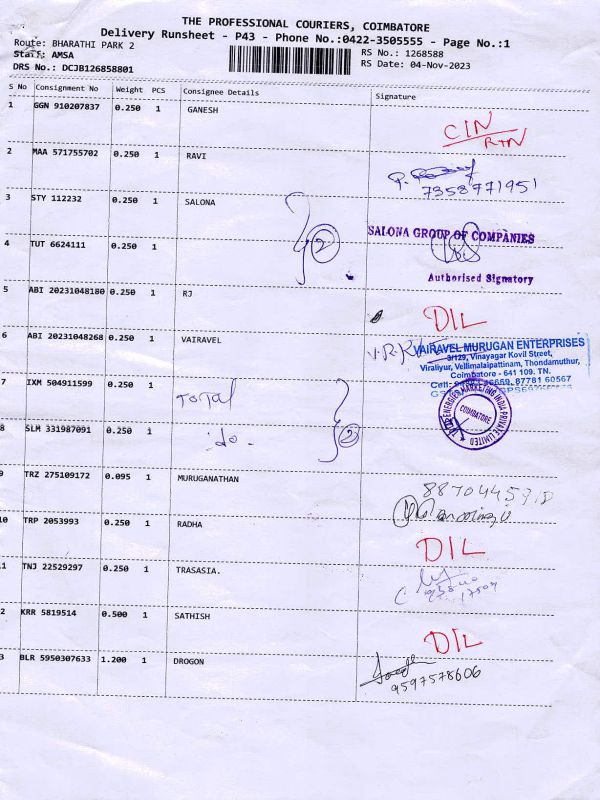 THE PROFESSIONAL COURIERS, COIMBATORE
Delivery Runsheet - P43 - Phone No.:0422-3505555 - Page No.:1
Route: BHARATHI PARK 2
Staff: AMSA
DRS No.: DCJB126858801
RS No.: 1268588
RS Date: 04-Nov-2023
S No Consignment No Weight PCS Consignee Details Signature
1 GGN 910207837 0.250 1 GANESH
CIN
RTN
2 MAA 571755702 0.250 1 RAVI
7358771951
3 STY 112232 0.250 1 SALONA
2
SALONA GROUP OF COMPANIES
4 TUT 6624111 0.250 1
Authorised Signatory
5 ABI 20231048180 0.250 1 RJ
DIL
6 ABI 20231048268 0.250 1 VAIRAVEL
VAIRAVEL MURUGAN ENTERPRISES
3/129, Vinayagar Kovil Street,
Viraliyur, Vellimalaipattinam, Thondamuthur,
Coimbatore - 641 109. TN.
87781 60567
7 IXM 504911599 0.250 1
Total
MARKETING INDIA PRIVATE LIMITED
COIMBATORE
8 SLM 331987091 0.250 1
ido - 2
9 TRZ 275109172 0.095 1 MURUGANATHAN
10 TRP 2053993 0.250 1 RADHA
DIL
1 TNJ 22529297 0.250 1 TRASASIA.
2 KRR 5819514 0.500 1 SATHISH
DIL
3 BLR 5950307633 1.200 1 DROGON
9597578606